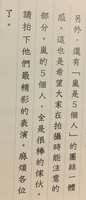 另外，還有「嵐是5個人」的團結一體
感，這也是希望大家在拍攝時能注意的
部分。嵐的5個人，全是很棒的傢伙，
請拍下他們最精彩的表演。麻煩各位
了。